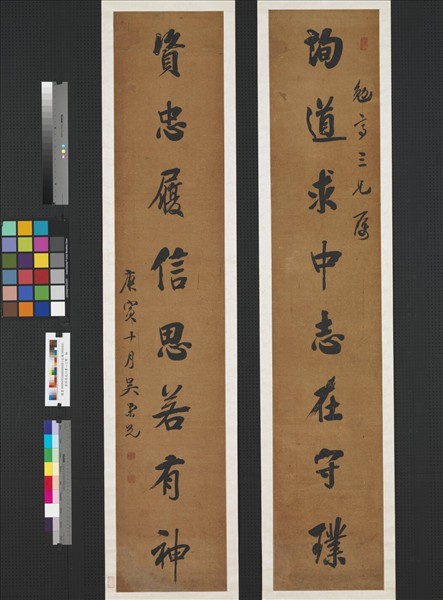 三兄屬
詢道求中志在守璞
資忠履信思若有神
庚寅十月吳榮光